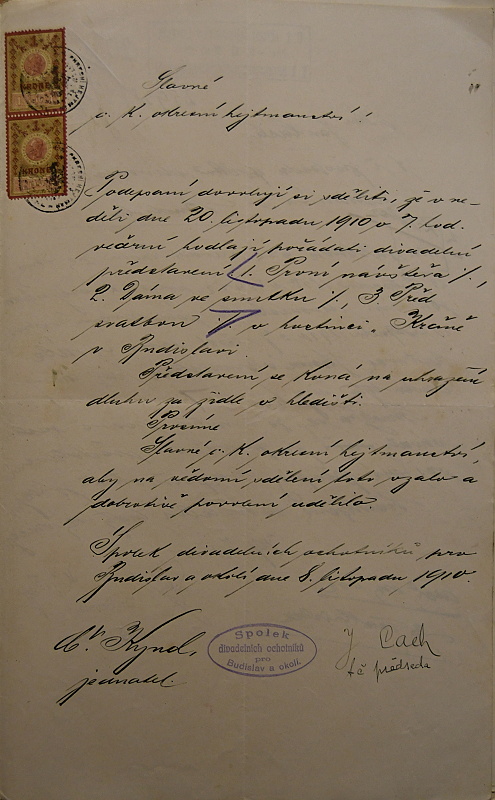 1
KRONE
1
KRONE
Slavné
c. K. okresní hejtmanství!
Podepsaní dovolují si sděliti, že v ne-
děli dne 20. listopadu 1910 v 7. hod.
večerní hodlají pořádati divadelní
představení 1. První návštěva /.,
2. Dáma ve smutku /., 3. Před
svatbou /. v hostinci „Kráně
v Budislavi.
Představení se koná na uhrazení
dluhu za židle v hledišti.
Prosíme
Slavné c. K. okresní hejtmanství,
aby na vědomí sdělení toto vzalo a
dobrotivě povolení udělilo.
Spolek divadelních ochotníků pro
Budislav a okolí dne 8. listopadu 1910.
Kyncl,
jednatel.
Spolek
divadelních ochotníků
pro
Budislav a okolí.
J. Cach
t č předseda